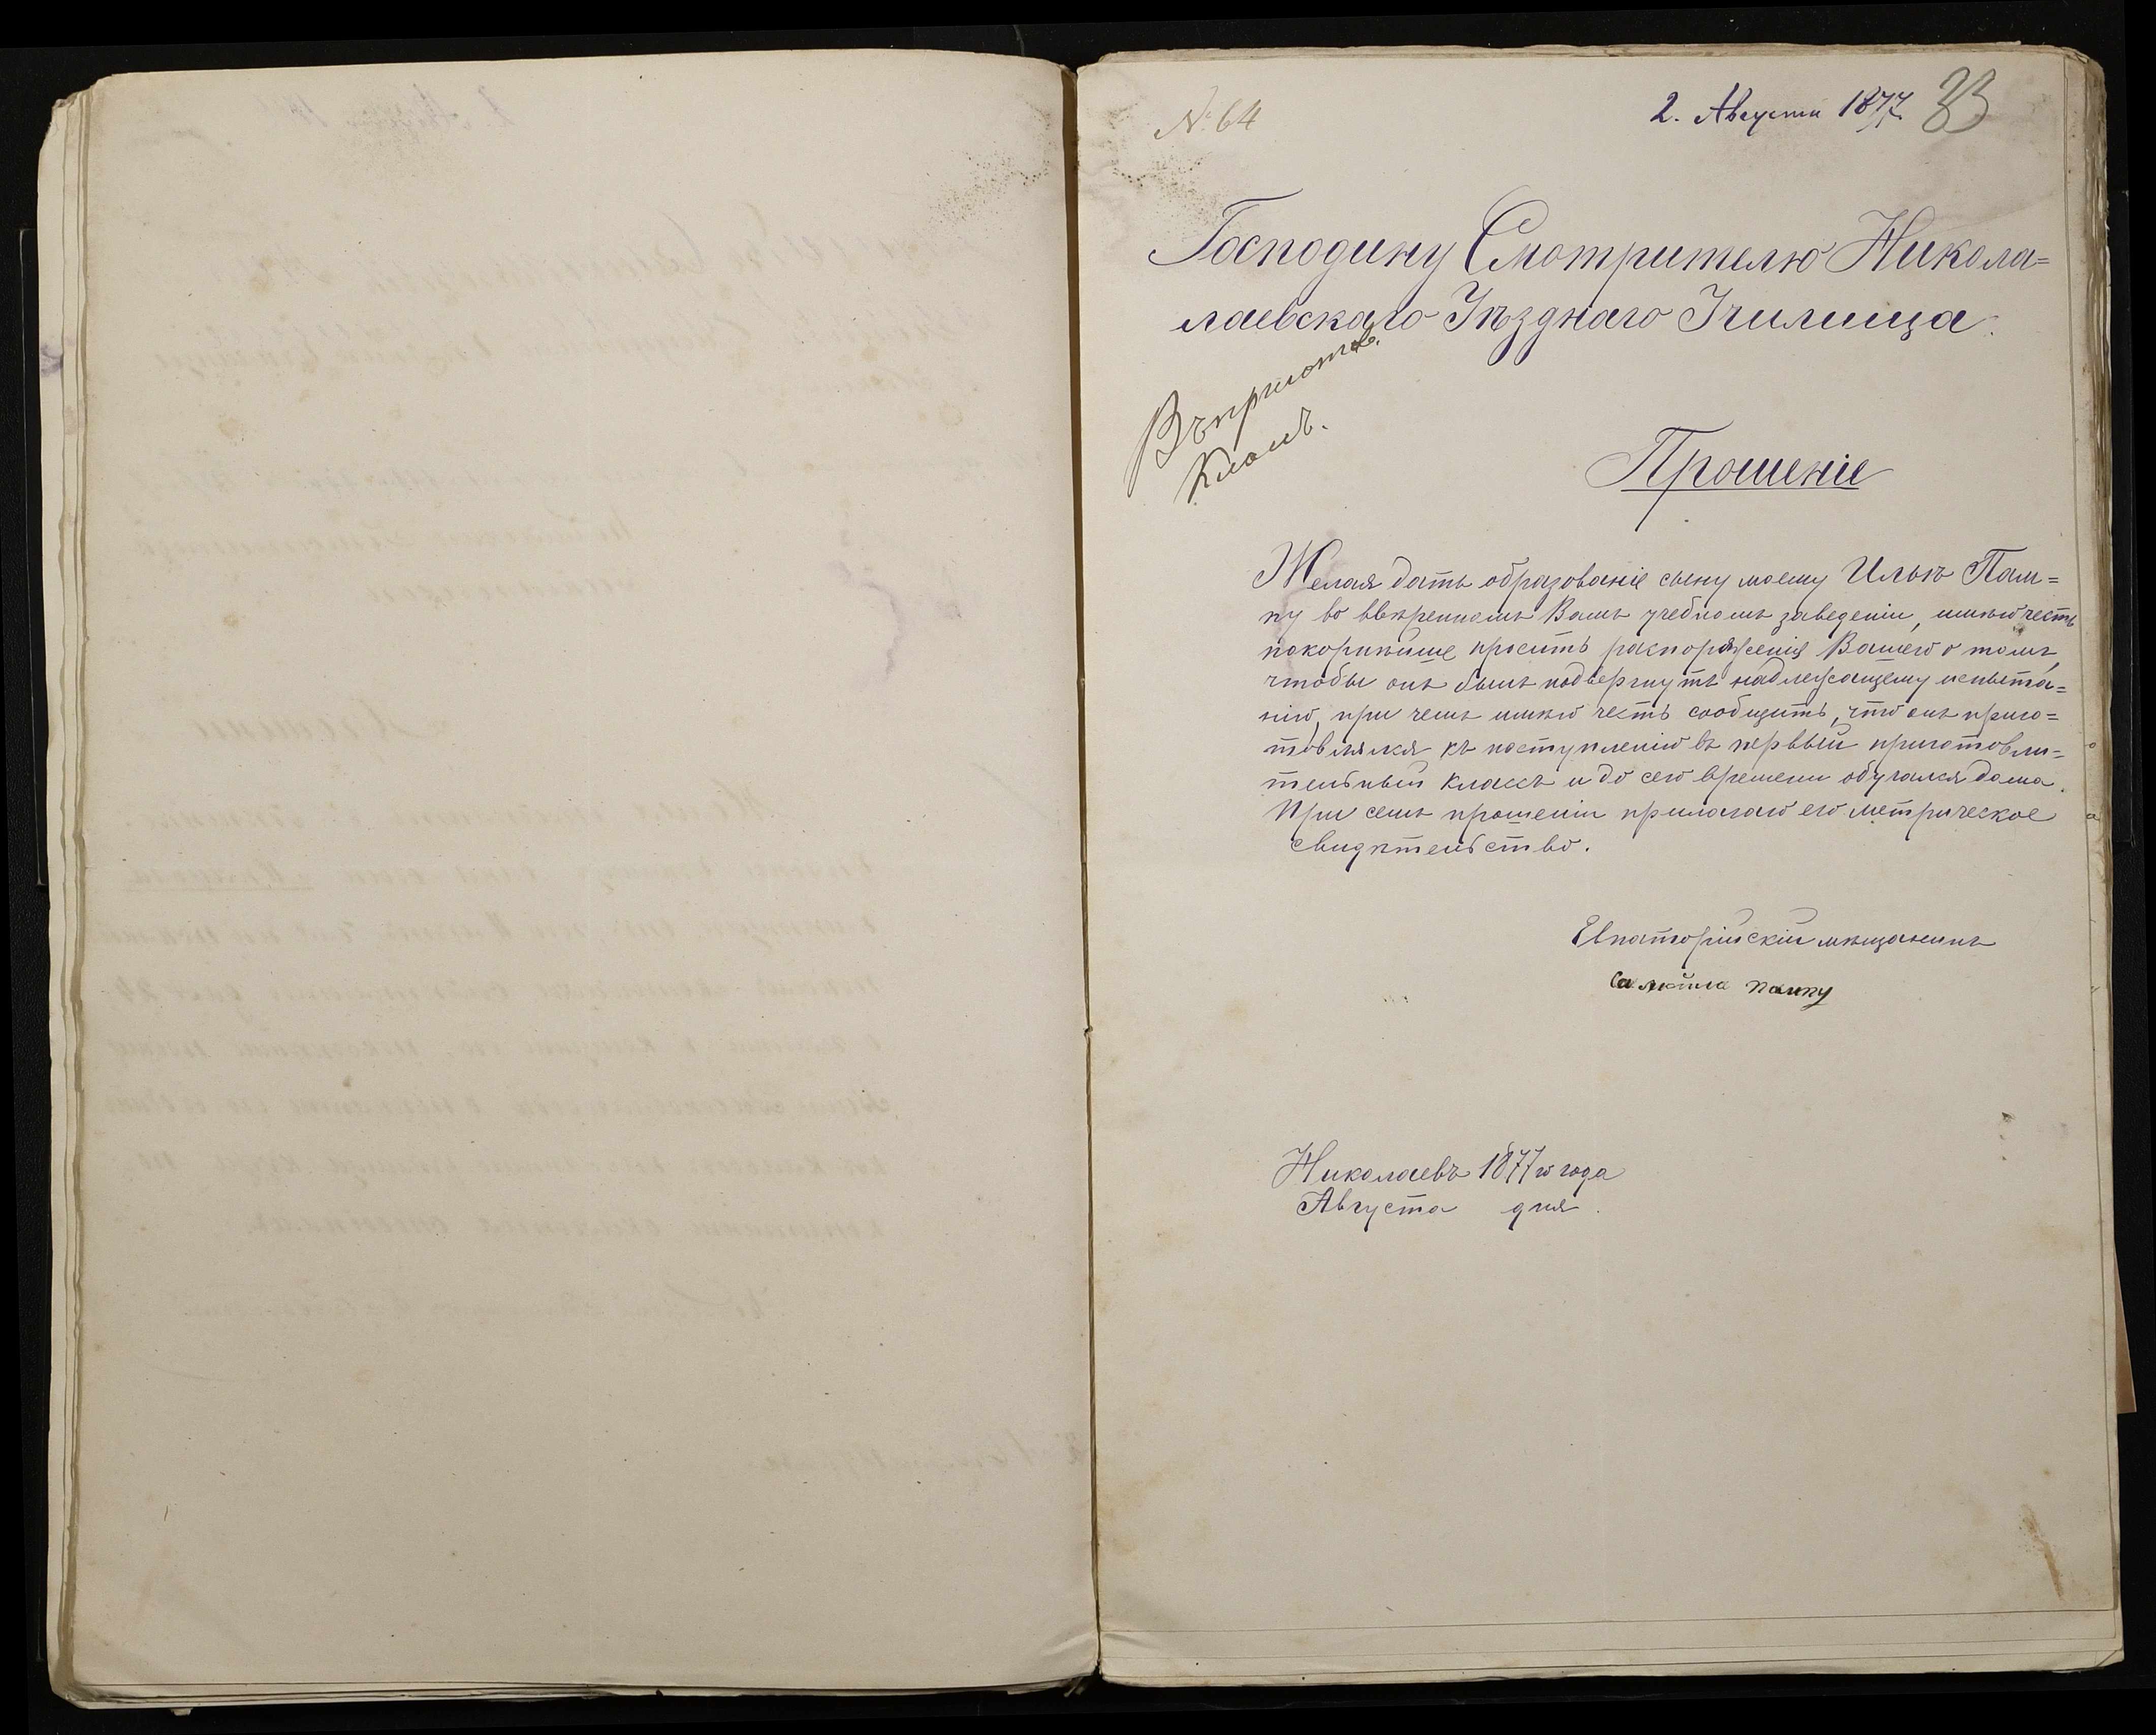 № 64
2. Августа 1877
33
Господину Смотрителю Никола=
лаевскаго Уѣзднаго Училища.
Въ пригото́в.
Классъ.
Прошеніе
Желая дать образованіе сыну моему Ильѣ Пам=
пу во ввѣренномъ Вамъ учебномъ заведеніи, имѣю честь
покорнѣйше просить распоряженія Вашего о томъ,
чтобы онъ былъ подвергнутъ надлежащему испыта=
нію, при чемъ имѣю честь сообщить, что онъ приго=
товлялся къ поступленію въ первый приготовли=
тельный классъ и до сего времени обучался дома.
При семъ прошеніи прилагаю его метрическое
свидѣтельство.
Евпаторійскій мѣщанинъ
Пампу
Николаевъ 1877 го года
Августа дня.